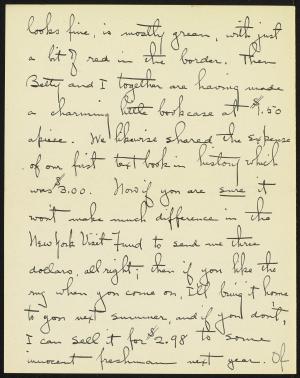 looks fine, is mostly green, with just
a bit of red in the border. Then
Betty and I together are having made
a charming little bookcase at $1.50
apiece. We likewise shared the expense
of our first text book in history which
was $3.00. Now if you are sure it
won't make much difference in the
New York Visit Fund to send me three
dollars, all right; then if you like the
rug when you come on, I'll bring it home
to you next summer, and if you don't,
I can sell it for $2.98 to some
innocent freshman next year. Of